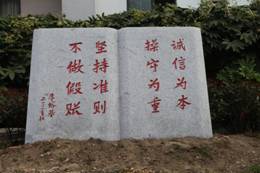 诚信为本
操守为重
坚持准则
不做假账